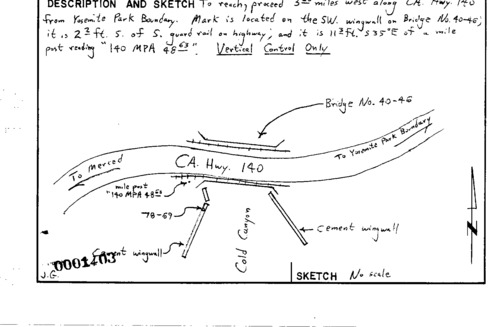 DESCRIPTION AND SKETCH To reach, proceed 3 miles west along CA. Hwy. 140
from Yosemite Park Boundary. Mark is located on the SW. wingwall on Bridge No. 40-46;
it is 2 ft. S. of S. guard rail on highway; and it is 11 ft. S35°E of a mile
post reading "140 MPA 48 63". Vertical Control Only
Bridge No. 40-46
To Yosemite Park Boundary
To Merced
CA. Hwy. 140
mile post
"140 MPA 48 63"
78-69
Cement wingwall
Cement wingwall
Cold Canyon
N
J.G.
SKETCH No scale